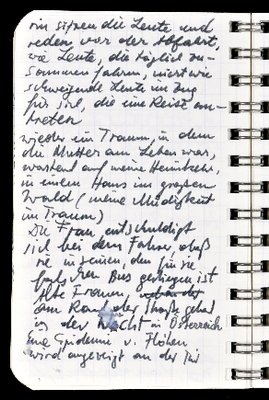 sitzen die Leute und
reden vor der Abfahrt,
wie Leute, die täglich zu-
sammen fahren, nicht wie
schweigende Leute im Zug
für sich, die eine Reise an-
treten
wieder ein Traum, in dem
die Mutter am Leben war,
wartend auf meine Heimkehr,
in einem Haus im großen
Wald (meine Müdigkeit
im Traum)
Die Frau entschuldigt
sich bei dem Fahrer, daß
sie in seinen, den für sie
falschen Bus gestiegen ist
Alte Frauen
am Rand der Straße
in der Nacht in Österreich
Eine Epidemie v. Flöhen
wird angezeigt an der